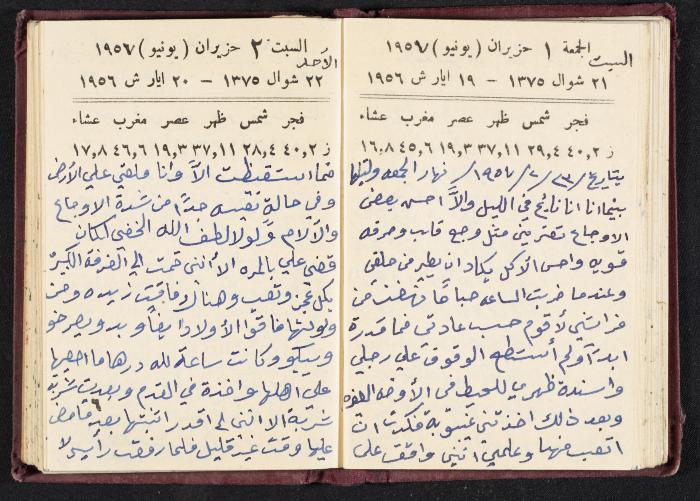 الجمعة ١ حزيران ( يونيو ) ١٩٥٦
السبت
٢١ شوال ١٣٧٥ – ١٩ ايار ش ١٩٥٦
فجر شمس ظهر عصر مغرب عشاء
ز ٤٠,٢ ٢٩,٤ ٣٧,١١ ١٩,٣ ٤٥,٦ ١٦,٨
بتاريخ /٢٣/ ٢/ ١٩٥٦/ نهار الجمعه وليلها
بينما انا نائم في الليل والاَّ احس ببعض
الاوجاع تعتريني مثل وجع قلب وحرقه
قويه واحس الأكل يكاد ان يطير من حلقي
وعندما ضربت الساعه صباحًا نهضت من
فراشي لأقوم حسب عادتي فما قدرة
ابدًا ولم أستطع الوقوف علي رجلي
واسندة ظهري للحيط في الأوضه
وبعد ذلك اخذتني فكرت ان
اتعب منها وعلمي انني واقف على
السبت ٢ حزيران ( يونيو ) ١٩٥٦
الأحد
٢٢ شوال ١٣٧٥ – ٢٠ ايار ش ١٩٥٦
فجر شمس ظهر عصر مغرب عشاء
ز ٤٠,٢ ٢٨,٤ ٣٧,١١ ١٩,٣ ٤٦,٦ ١٧,٨
فما استيقظت الاَّ وانا ملقي علي الأرض
وفي حالة تعيسه جدًا من شدة الاوجاع
والآلام ولولا لطف الله الخفي لكان
قضي علي بالمره الا أنني قمت الي الغرفة الكبيره
بكل عجز وتعب وهناك فاقت زبيده ومن
ولولتها فاقوا الأولاد ايضاً وبدو يصرخو
ويبكو وكانت ساعة لله درها ما اصعبها
على اهلها واخذة في القدم وبعدت شربة
شربة الا انني لم اقدر اثبتها بعد فما مضى
عليها وقت غير قليل فلما رفقت رأيي لا